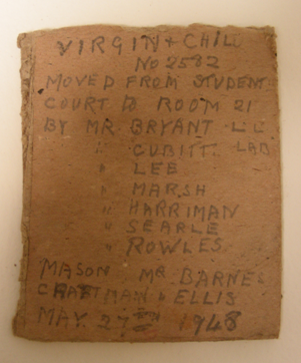 VIRGIN & CHIL
No 2582
MOVED FROM STUDENT
COURT TO ROOM 21
BY MR BRYANT L.C
" CUBITT LAB
" LEE
" MARSH
" HARRIMAN
" SEARLE
" ROWLES
MASON MR BARNE
CRAFTMAN " ELLIS
MAY 27TH 1948